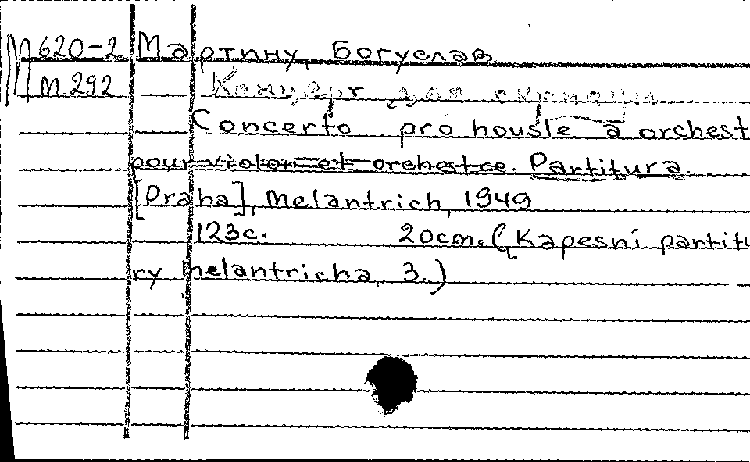 М620-2 Мартину, Богуслав
М292 Концерт для скрипки
Concerto pro housle a orchest
pour violon et orchestre. Partitura.
[Praha], Melantrich, 1949
123c. 20cm. (Kapesní partitu
ry Melantricha, 3.)